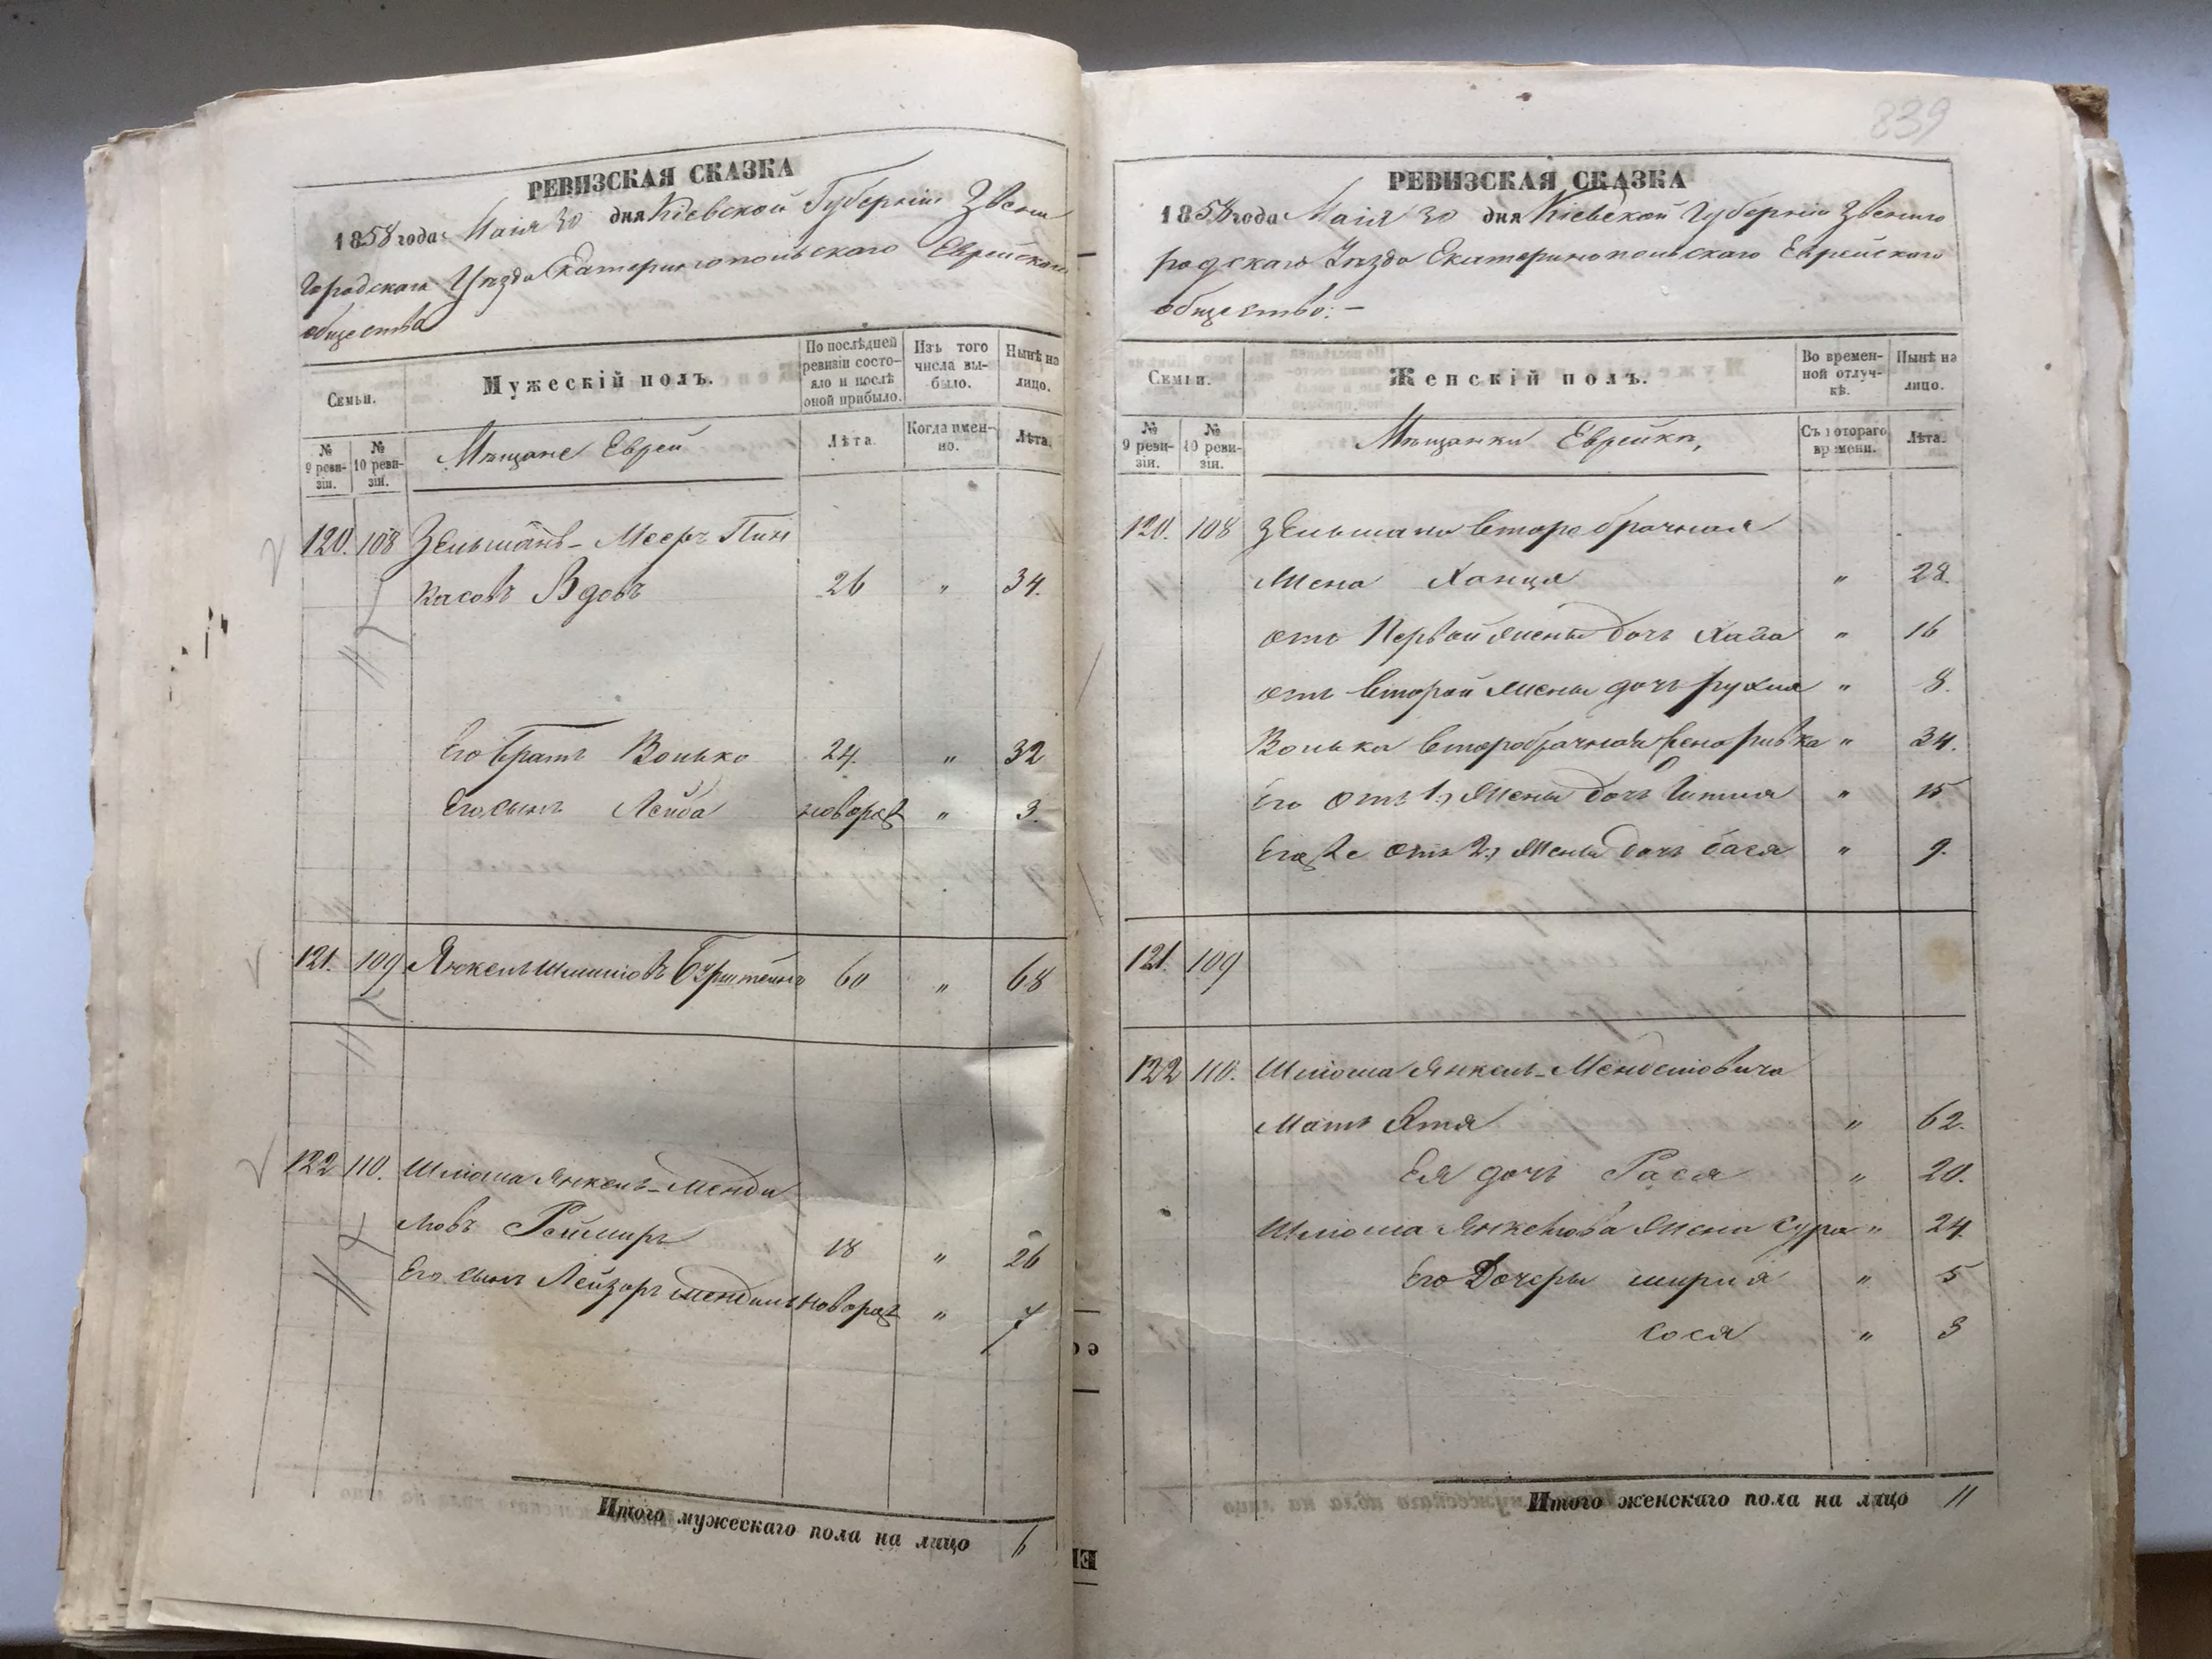 РЕВИЗСКАЯ СКАЗКА
1858 года Маія 30 дня Кіевской Губерніи Звени
городскаго Уѣзда Екатеринопольскаго Еврейскаго
общества
Семьи.
Мужескій полъ.
По послѣдней ревизіи состо-
яло и послѣ оной прибыло.
Изъ того числа вы-
было.
Нынѣ на лицо.
№ 9 реви-
зіи.
№ 10 реви-
зіи.
Мѣщане Евреи
Лѣта.
Когда имен-
но.
Лѣта.
120. 108 Зельманъ-Мееръ Пин
касовъ Вдовъ 26 " 34.
Его братъ Волько 24. " 32
Его сынъ Лейба новорож " 3.
121. 109 Янкель Шлиомовъ Бурштейнъ 60 " 68
122 110. Шліома Янкель-Менди
ловъ Реймиръ 18 " 26
Его сынъ Лейзоръ Мендиль новорож " 7
Итого мужескаго пола на лицо 6
839
РЕВИЗСКАЯ СКАЗКА
1858 года Маія 30 дня Кіевской Губерніи Звениго
родскаго Уѣзда Екатеринопольскаго Еврейскаго
общество: —
Семьи.
Женскій полъ.
Во времен-
ной отлуч-
кѣ.
Нынѣ на лицо.
№ 9 реви-
зіи.
№ 10 реви-
зіи.
Мѣщанки Еврейки,
Съ котораго времени.
Лѣта.
120. 108 Зельмана второбрачная
Жена Ханця " 28.
отъ Первой жены дочь Хая " 16
отъ второй жены дочь рухля " 8.
Волька второбрачная жена ривка " 34.
Его отъ 1й Жены дочь Гитля " 15
Его же отъ 2й Жены дочь бася " 9.
121. 109
122 110. Шліома Янкель-Менделіовича
Мать Этя " 62.
Ея дочь Рася " 20.
Шліома Янкеліова Жена Сура " 24.
Его Дочеры ширля " 5
Сося " 3
Итого женскаго пола на лицо 11